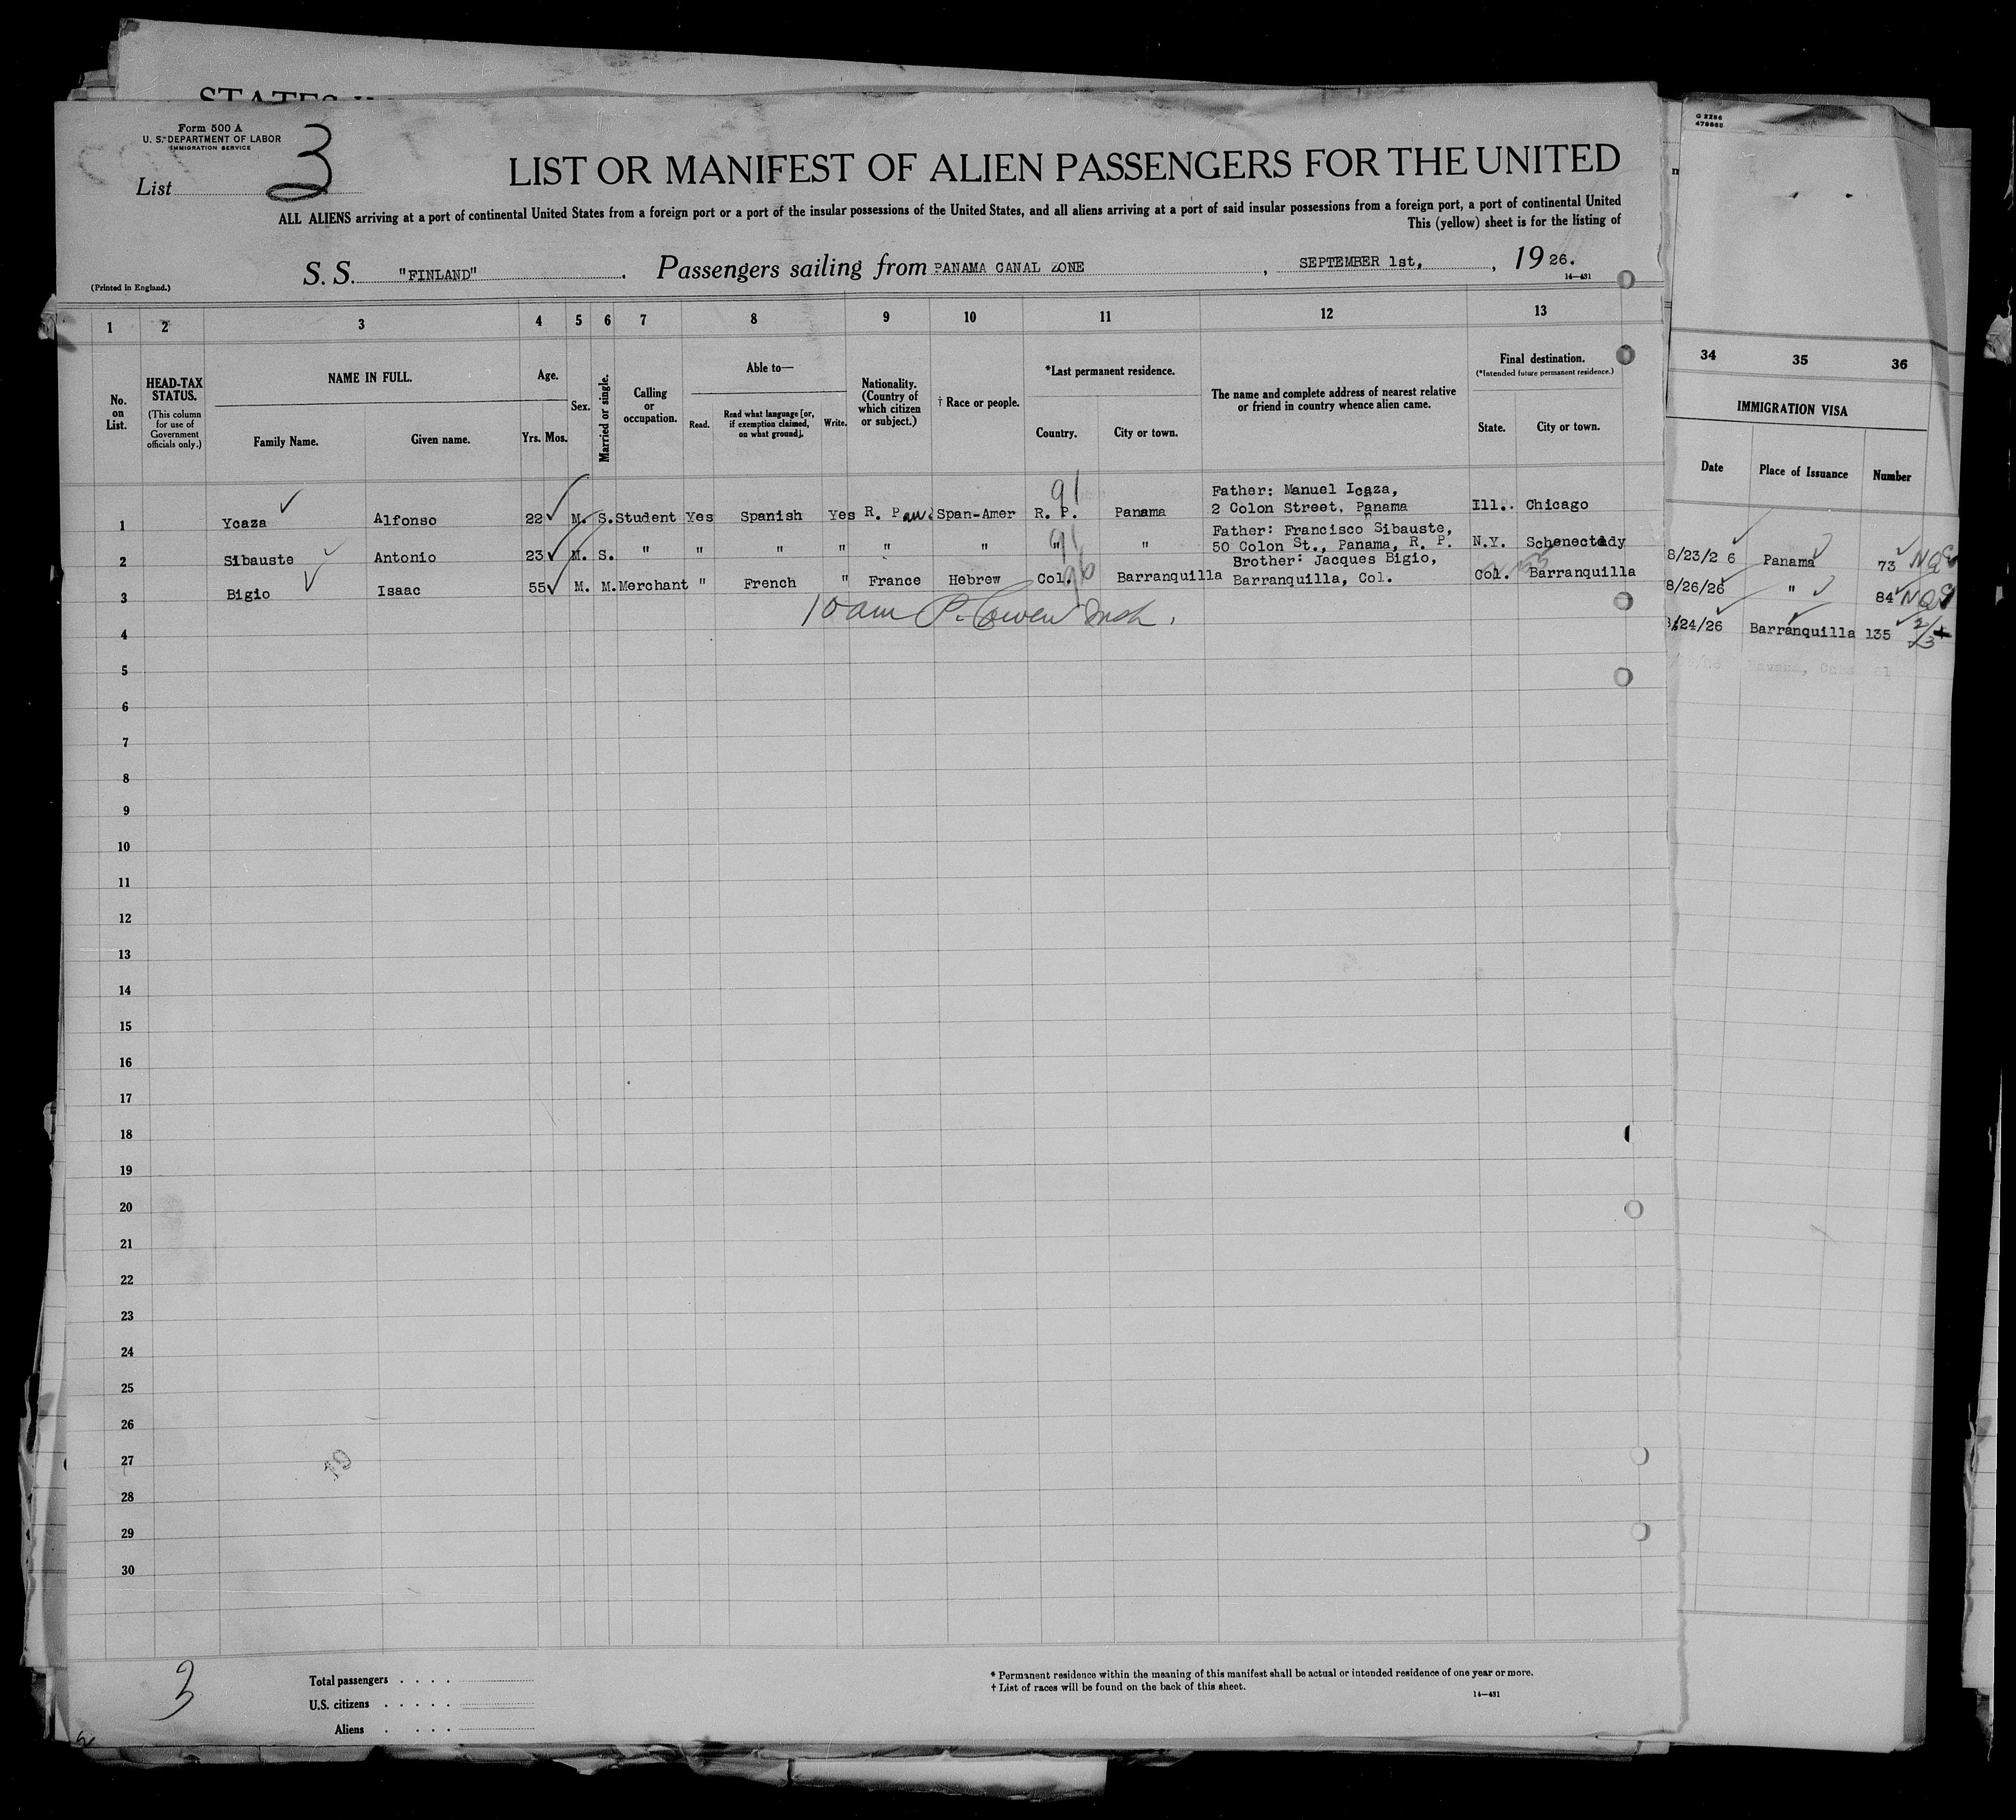 STATES
Form 500 A
U. S. DEPARTMENT OF LABOR
IMMIGRATION SERVICE
List 3
LIST OR MANIFEST OF ALIEN PASSENGERS FOR THE UNITED
ALL ALIENS arriving at a port of continental United States from a foreign port or a port of the insular possessions of the United States, and all aliens arriving at a port of said insular possessions from a foreign port, a port of continental United
This (yellow) sheet is for the listing of
S. S. "FINLAND". Passengers sailing from PANAMA CANAL ZONE, SEPTEMBER 1st, , 19 26.
(Printed in England.)
14—431
1 2 3 4 5 6 7 8 9 10 11 12 13
No. on List.
HEAD-TAX STATUS.
(This column for use of Government officials only.)
NAME IN FULL.
Family Name. Given name.
Age.
Yrs. Mos.
Sex.
Married or single.
Calling or occupation.
Able to—
Read. Read what language [or, if exemption claimed, on what ground]. Write.
Nationality. (Country of which citizen or subject.)
† Race or people.
*Last permanent residence.
Country. City or town.
The name and complete address of nearest relative or friend in country whence alien came.
Final destination.
(*Intended future permanent residence.)
State. City or town.
G 2286
479865
34 35 36
IMMIGRATION VISA
Date Place of Issuance Number
91
1 Ycaza Alfonso 22 M. S. Student Yes Spanish Yes R. Pan. Span-Amer R. P. Panama Father: Manuel Icaza, 2 Colon Street, Panama Ill. Chicago
91
2 Sibauste Antonio 23 M. S. " " " " " " " " Father: Francisco Sibauste, 50 Colon St., Panama, R. P. N.Y. Schenectady
96
3 Bigio Isaac 55 M. M. Merchant " French " France Hebrew Col. Barranquilla Brother: Jacques Bigio, Barranquilla, Col. Col. Barranquilla
8/23/2 6 Panama 73 NQ
8/26/26 " 84 NQ
8/24/26 Barranquilla 135 2/3
10 am P. Cowen Insh.
4
5
6
7
8
9
10
11
12
13
14
15
16
17
18
19
20
21
22
23
24
25
26
27
28
29
30
3
Total passengers . . . .
U.S. citizens . . . . .
Aliens . . . .
* Permanent residence within the meaning of this manifest shall be actual or intended residence of one year or more.
† List of races will be found on the back of this sheet.
14—431